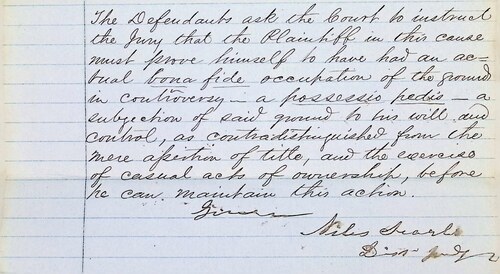 The Defendants ask the Court to instruct
the Jury that the Plaintiff in this cause
must prove himself to have had an ac=
tual bona fide occupation of the ground
in controversy — a possessio pedis — a
subjection of said ground to his will and
control, as contradistinguished from the
mere assertion of title, and the exercise
of casual acts of ownership, before
he can maintain this action.
Given
Niles Searls
Dist Judge